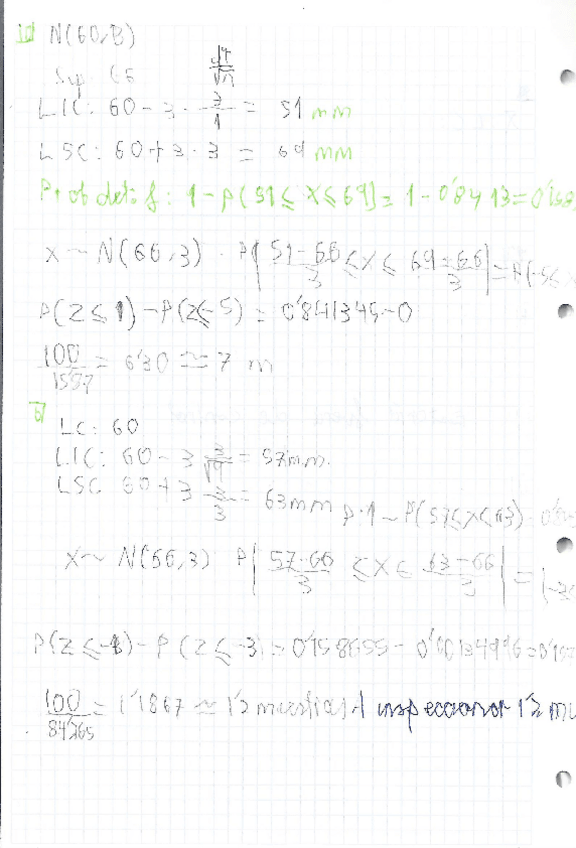 N(60,3)
Sup. 66
LIC: 60 - 3 · 3/1 = 51 mm
LSC: 60 + 3 · 3 = 69 mm
Prob det. f: 1 - P(51 ≤ X ≤ 69) = 1 - 0'8413 = 0'158
X ~ N(66,3) · P(51-66/3 ≤ X ≤ 69-66/3) = P(-5 ≤ X
P(Z ≤ 1) - P(Z ≤ -5) = 0'841345 - 0
100/15'87 = 6'30 ≈ 7 m
LC: 60
LIC: 60 - 3 3/√9 = 57mm.
LSC 60 + 3 3/3 = 63mm P. 1 - P(57 ≤ X ≤ 63)
X ~ N(66,3) P(57-66/3 ≤ X ≤ 63-66/3) = (-3
P(Z ≤ -1) - P(Z ≤ -3) = 0'158655 - 0'00134996 = 0'157
100/84'265 = 1'1867 ≈ 1'2 muestras / inspeccionar 1'2 mu